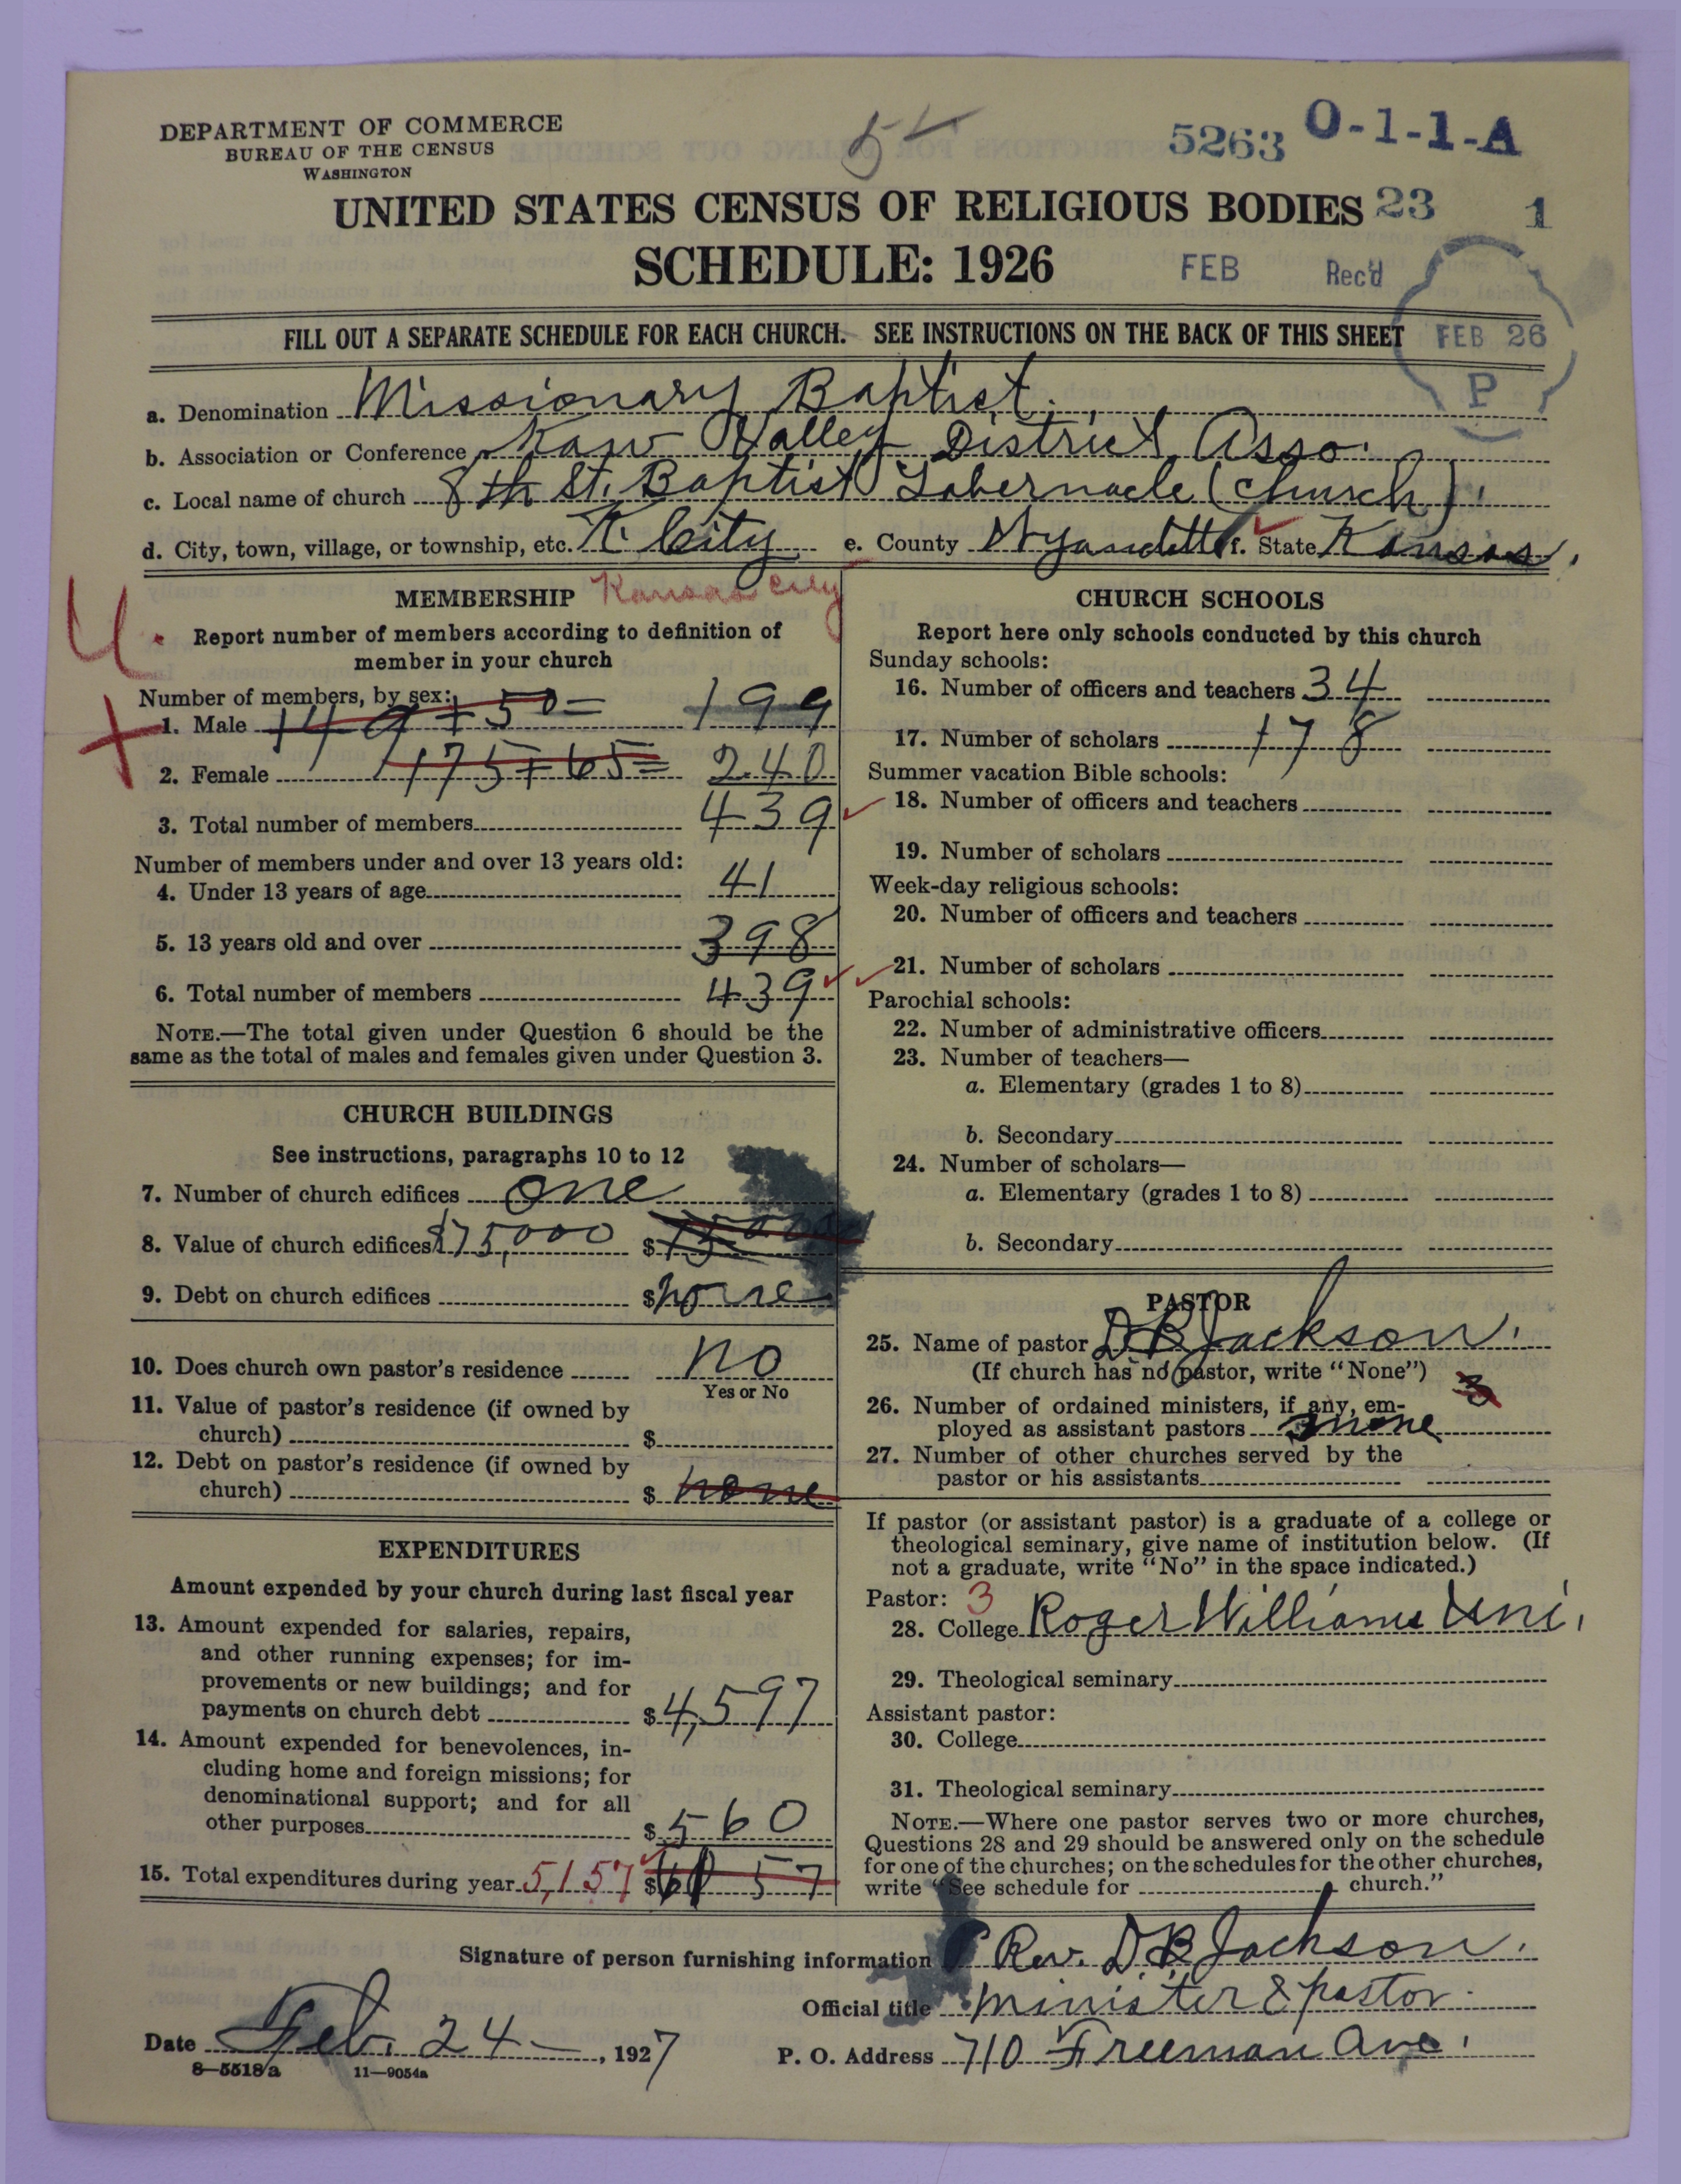 DEPARTMENT OF COMMERCE
BUREAU OF THE CENSUS
WASHINGTON
5263 O-1-1-A
UNITED STATES CENSUS OF RELIGIOUS BODIES 23 1
SCHEDULE: 1926 FEB Rec'd
FILL OUT A SEPARATE SCHEDULE FOR EACH CHURCH. SEE INSTRUCTIONS ON THE BACK OF THIS SHEET FEB 26
P
a. Denomination Missionary Baptist.
b. Association or Conference Kaw Valley District Asso.
c. Local name of church 8th St. Baptist Tabernacle (Church).
d. City, town, village, or township, etc. K. City e. County Wyandotte f. State Kansas.
MEMBERSHIP Kansas City
U.
Report number of members according to definition of
member in your church
Number of members, by sex:
1. Male 149+50= 199
2. Female 175+65= 240
3. Total number of members 439
Number of members under and over 13 years old:
4. Under 13 years of age 41
5. 13 years old and over 398
6. Total number of members 439
NOTE.—The total given under Question 6 should be the
same as the total of males and females given under Question 3.
CHURCH BUILDINGS
See instructions, paragraphs 10 to 12
7. Number of church edifices one
8. Value of church edifices $75,000 $
9. Debt on church edifices $ none
10. Does church own pastor's residence no
Yes or No
11. Value of pastor's residence (if owned by
church) $
12. Debt on pastor's residence (if owned by
church) $ none
EXPENDITURES
Amount expended by your church during last fiscal year
13. Amount expended for salaries, repairs,
and other running expenses; for im-
provements or new buildings; and for
payments on church debt $ 4,597
14. Amount expended for benevolences, in-
cluding home and foreign missions; for
denominational support; and for all
other purposes $ 560
15. Total expenditures during year 5,157 $
CHURCH SCHOOLS
Report here only schools conducted by this church
Sunday schools:
16. Number of officers and teachers 34
17. Number of scholars 178
Summer vacation Bible schools:
18. Number of officers and teachers
19. Number of scholars
Week-day religious schools:
20. Number of officers and teachers
21. Number of scholars
Parochial schools:
22. Number of administrative officers
23. Number of teachers—
a. Elementary (grades 1 to 8)
b. Secondary
24. Number of scholars—
a. Elementary (grades 1 to 8)
b. Secondary
PASTOR
25. Name of pastor D B Jackson.
(If church has no pastor, write "None")
3
26. Number of ordained ministers, if any, em-
ployed as assistant pastors none
27. Number of other churches served by the
pastor or his assistants
If pastor (or assistant pastor) is a graduate of a college or
theological seminary, give name of institution below. (If
not a graduate, write "No" in the space indicated.)
Pastor: 3
28. College Roger Williams Uni.
29. Theological seminary
Assistant pastor:
30. College
31. Theological seminary
NOTE.—Where one pastor serves two or more churches,
Questions 28 and 29 should be answered only on the schedule
for one of the churches; on the schedules for the other churches,
write "See schedule for church."
Signature of person furnishing information Rev. D. B. Jackson.
Official title minister & pastor.
Date Feb. 24 —, 1927 P. O. Address 710 Freeman Ave.
8—5518a 11—9054a